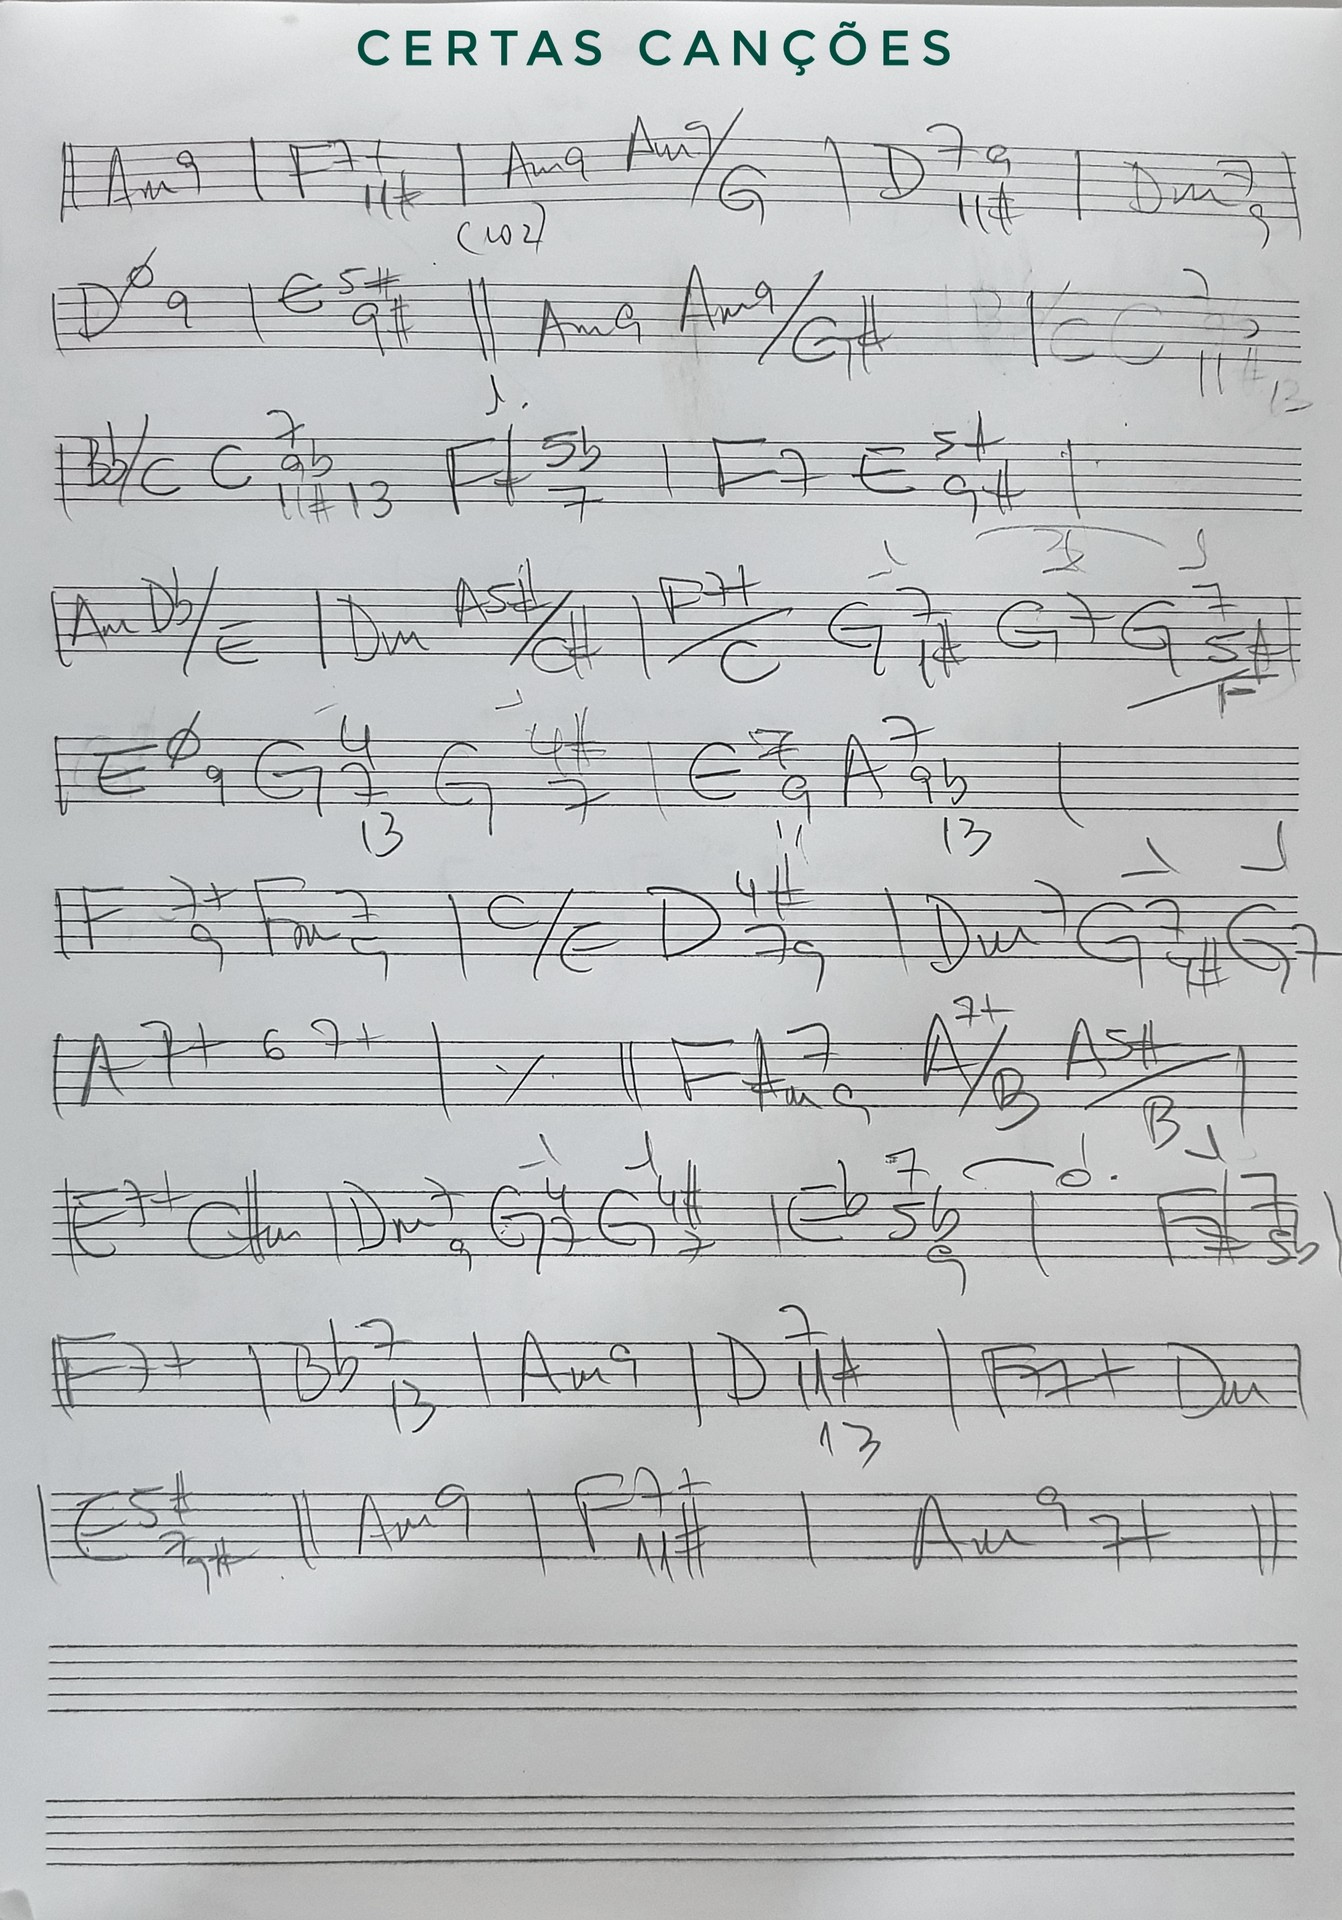 CERTAS CANÇÕES
Am9 | F7+ 11# | Am9 Am9/G | D 7 9 11# | Dm7 9
DØ 9 | E 5# 9# || Am9 Am9/G#
Bb/C C 7 9b 11# 13 F# 5b 7 | F7 E 5# 9#
Am Db/E | Dm A5#/C# | F7+/C G 7 G7 G 7 5#/F
EØ 9 G 4 7 13 G 4# 7 | E 7 9 A 7 9b 13
F 7+ 9 Fm 7 9 | C/E D 4# 7 9 | Dm7 G7 G7
A 7+ 6 7+ | ٪ || F#m 7 9 A7+/B A5#/B
E7+ C#m | Dm 7 9 G 4 7 G 4# 7 | Eb 7 5b 9 | F# 7 5b
F7+ | Bb 7 13 | Am9 | D 7 11# 13 | F7+ Dm
E 5# 7 9# || Am9 | F7+ 11# | Am 9 7+